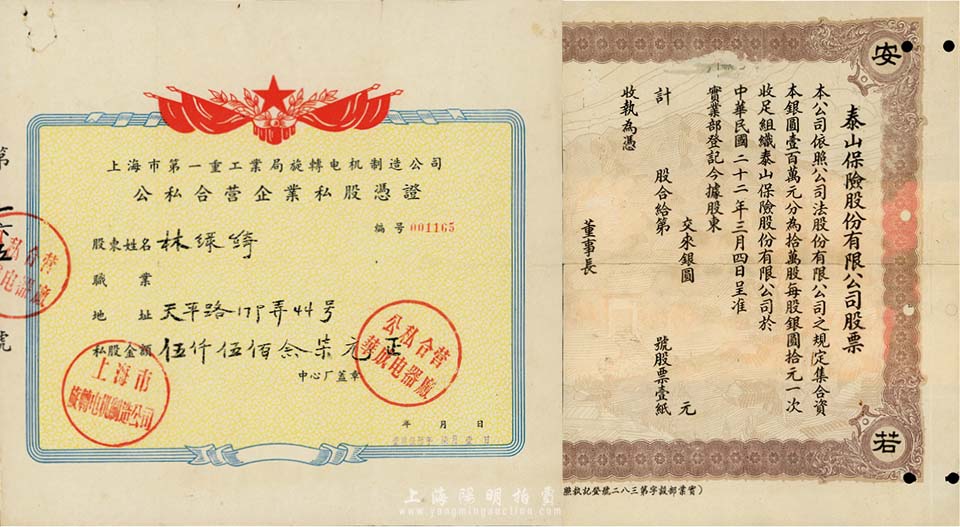 上海市第一重工业局旋转电机制造公司
公私合营企业私股憑證
编号001165
股東姓名 林
職業
地址 天平路 弄44号
私股金额 伍仟伍佰 柒元正
中心厂蓋章
年 月 日
公私合营
華成电器廠
上海市
旋轉电机制造公司
第
號
公私合营
电器廠
安
若
泰山保險股份有限公司股票
本公司依照公司法股份有限公司之規定集合資
本銀圓壹百萬元分為拾萬股每股銀圓拾元一次
收足組織泰山保險股份有限公司於
中華民國二十二年三月四日呈准
實業部登記今據股東
交來銀圓 元
計 股合給第 號股票壹紙
收執為憑
董事長
(實業部設字第三八二號登記執照
上海陽明拍賣
www.yangmingauction.com